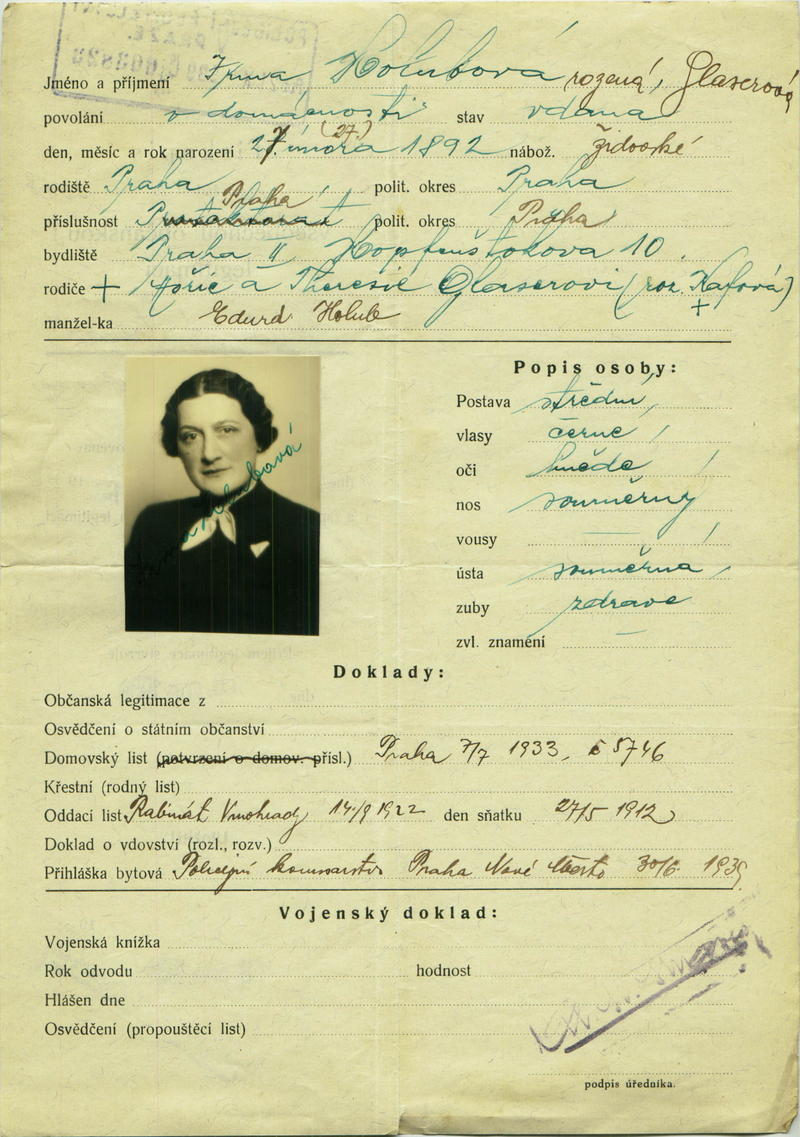 Jméno a příjmení Irma Holubová rozená, Glaserová
povolání v domácnosti stav vdaná
den, měsíc a rok narození 27. února (27.) 1892 nábož. židovské
rodiště Praha polit. okres Praha
Praha
příslušnost polit. okres Praha
bydliště Praha II, Hopfenštokova 10.
rodiče + Mořic a Theresie Glaserovi (roz. Kafová) +
manžel-ka Eduard Holub
Popis osoby:
Postava střední
vlasy černé
oči hnědé
nos souměrný
vousy —
ústa souměrná
zuby zdravé
zvl. znamení —
Irma Holubová
Doklady:
Občanská legitimace z
Osvědčení o státním občanství
Domovský list (potvrzení o domov. přísl.) Praha 7/7 1933, č 5746
Křestní (rodný list)
Oddací list Rabinát Vinohrady 14/9 1922 den sňatku 27/5 1912
Doklad o vdovství (rozl., rozv.)
Přihláška bytová Policejní komisařství Praha Nové Město 30/6. 1939
Vojenský doklad:
Vojenská knížka
Rok odvodu hodnost
Hlášen dne
Osvědčení (propouštěcí list)
podpis úředníka.